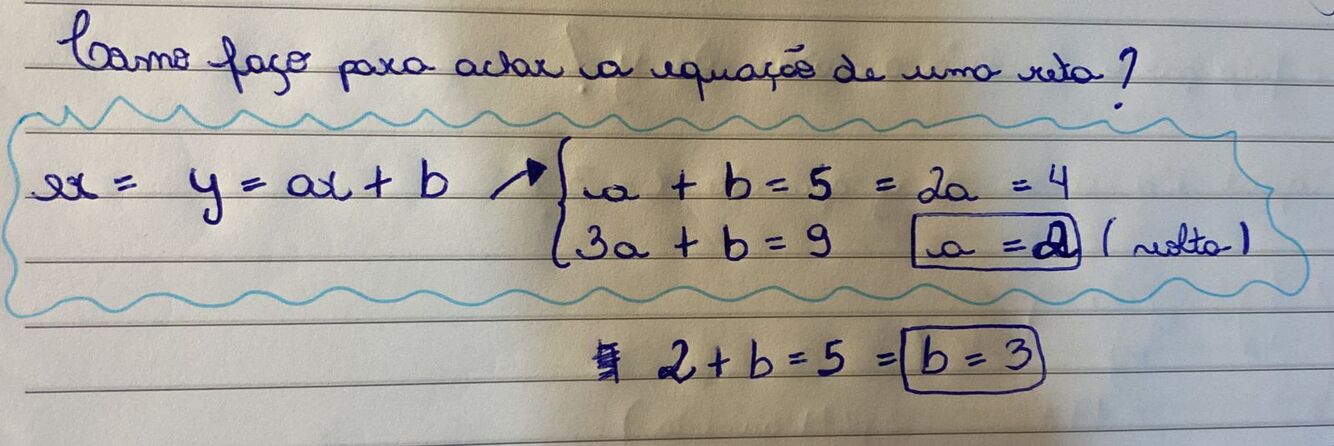 Como faço para achar a equação de uma reta?
ex = y = ax + b ↗ { a + b = 5 = 2a = 4
3a + b = 9 a = 2 (volta)
2 + b = 5 = b = 3